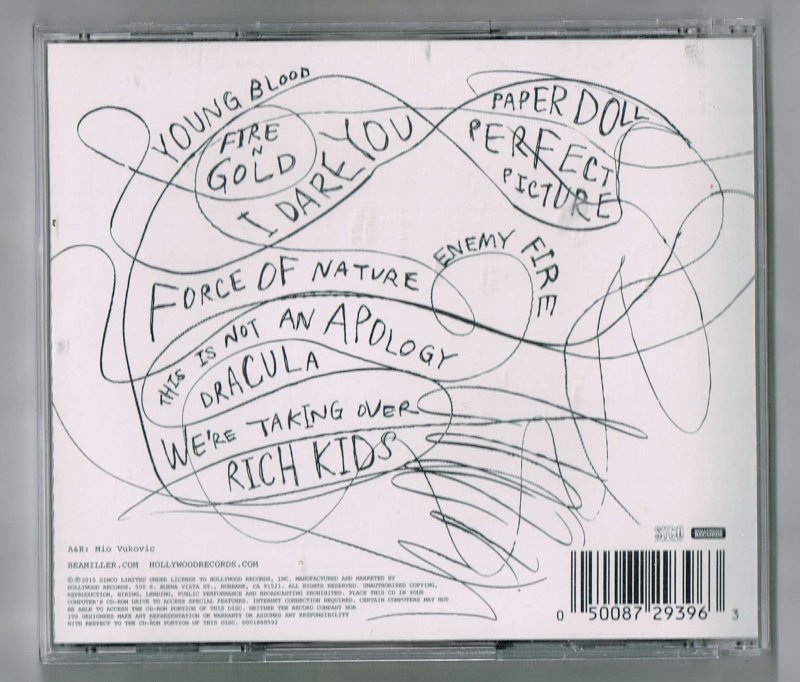 YOUNG BLOOD
FIRE
N
GOLD
I DARE YOU
PAPER DOLL
PERFECT
PICTURE
FORCE OF NATURE
ENEMY FIRE
THIS IS NOT AN APOLOGY
DRACULA
WE'RE TAKING OVER
RICH KIDS
A&R: Mio Vukovic
BEAMILLER.COM HOLLYWOODRECORDS.COM
©℗2015 SIMCO LIMITED UNDER LICENSE TO HOLLYWOOD RECORDS, INC. MANUFACTURED AND MARKETED BY
HOLLYWOOD RECORDS. 500 S. BUENA VISTA ST., BURBANK, CA 91521. ALL RIGHTS RESERVED. UNAUTHORIZED COPYING,
REPRODUCTION, HIRING, LENDING, PUBLIC PERFORMANCE AND BROADCASTING PROHIBITED. PLACE THIS CD IN YOUR
COMPUTER'S CD-ROM DRIVE TO ACCESS SPECIAL FEATURES. INTERNET CONNECTION REQUIRED. CERTAIN COMPUTERS MAY NOT
BE ABLE TO ACCESS THE CD-ROM PORTION OF THIS DISC. NEITHER THE RECORD COMPANY NOR
ITS DESIGNEES MAKE ANY REPRESENTATION OR WARRANTY OR ASSUMES ANY RESPONSIBILITY
WITH RESPECT TO THE CD-ROM PORTION OF THIS DISC. D001888592
SYCO
HOLLYWOOD
RECORDS
0 50087 29396 3